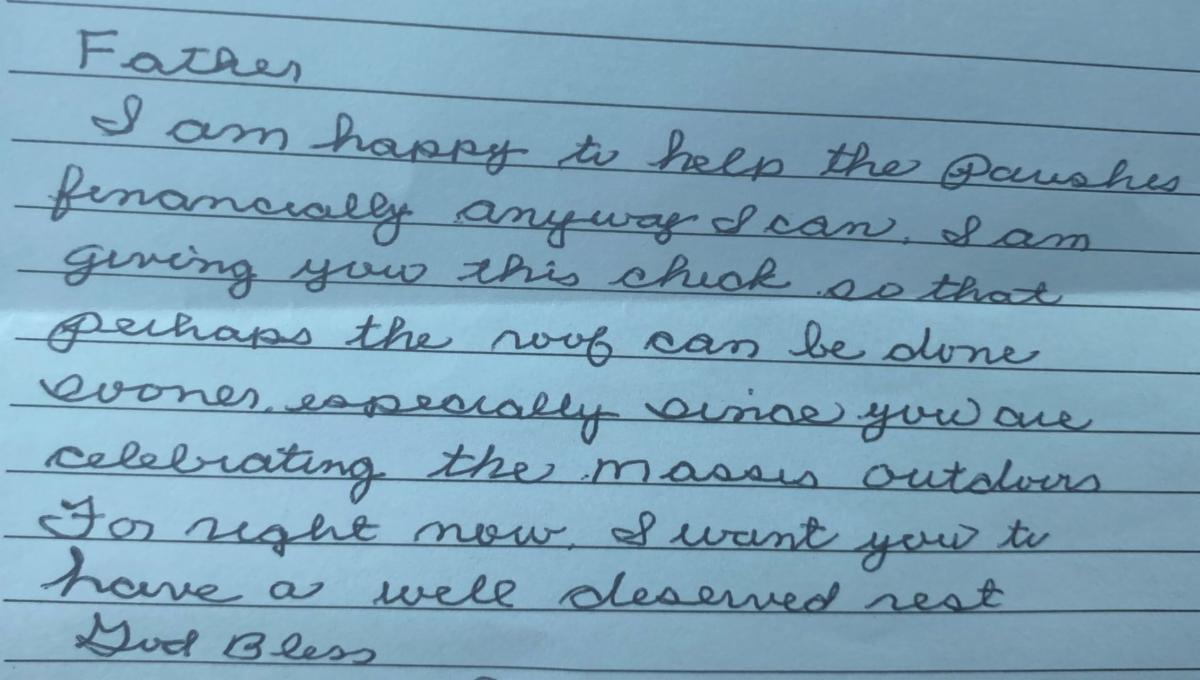 Father
I am happy to help the Parishes
financially anyway I can. I am
giving you this check so that
perhaps the roof can be done
sooner, especially since you are
celebrating the masses outdoors
For right now, I want you to
have a well deserved rest
God Bless